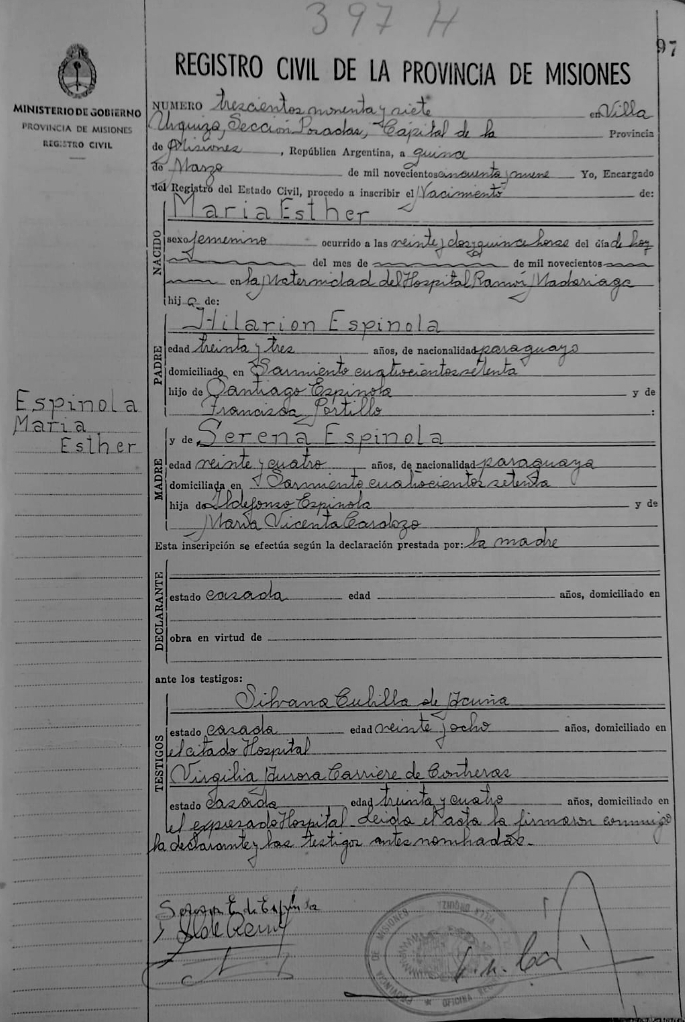 397 H
97
REGISTRO CIVIL DE LA PROVINCIA DE MISIONES
MINISTERIO DE GOBIERNO
PROVINCIA DE MISIONES
REGISTRO CIVIL
NUMERO trescientos noventa y siete en Villa
Urquiza, Sección Posadas, Capital de la Provincia
de Misiones, República Argentina, a quince
de Marzo de mil novecientos cincuenta y nueve Yo, Encargado
del Registro del Estado Civil, procedo a inscribir el Nacimiento de:
NACIDO
Maria Esther
sexo femenino ocurrido a las veinte y dos y quince horas del día de hoy
del mes de de mil novecientos
en la Maternidad del Hospital Ramón Madariaga
hija de:
PADRE
Hilarion Espinola
edad treinta y tres años, de nacionalidad paraguayo
domiciliado en Sarmiento cuatrocientos setenta
hijo de Santiago Espinola y de
Francisca Portillo :
Espinola
Maria
Esther
MADRE
y de Serena Espinola
edad veinte y cuatro años, de nacionalidad paraguaya
domiciliada en Sarmiento cuatrocientos setenta
hija de Ildefonso Espinola y de
María Vicenta Cardozo
Esta inscripción se efectúa según la declaración prestada por: la madre
DECLARANTE
estado casada edad años, domiciliado en
obra en virtud de
ante los testigos:
TESTIGOS
Silvana Cubilla de Acuña
estado casada edad veinte y ocho años, domiciliado en
el citado Hospital
Virgilia Aurora Carriere de Contreras
estado casada edad treinta y cuatro años, domiciliado en
el expresado Hospital. Leída el acta la firmaron conmigo
la declarante y las testigos antes nombradas.
PROVINCIA DE MISIONES
OFICINA